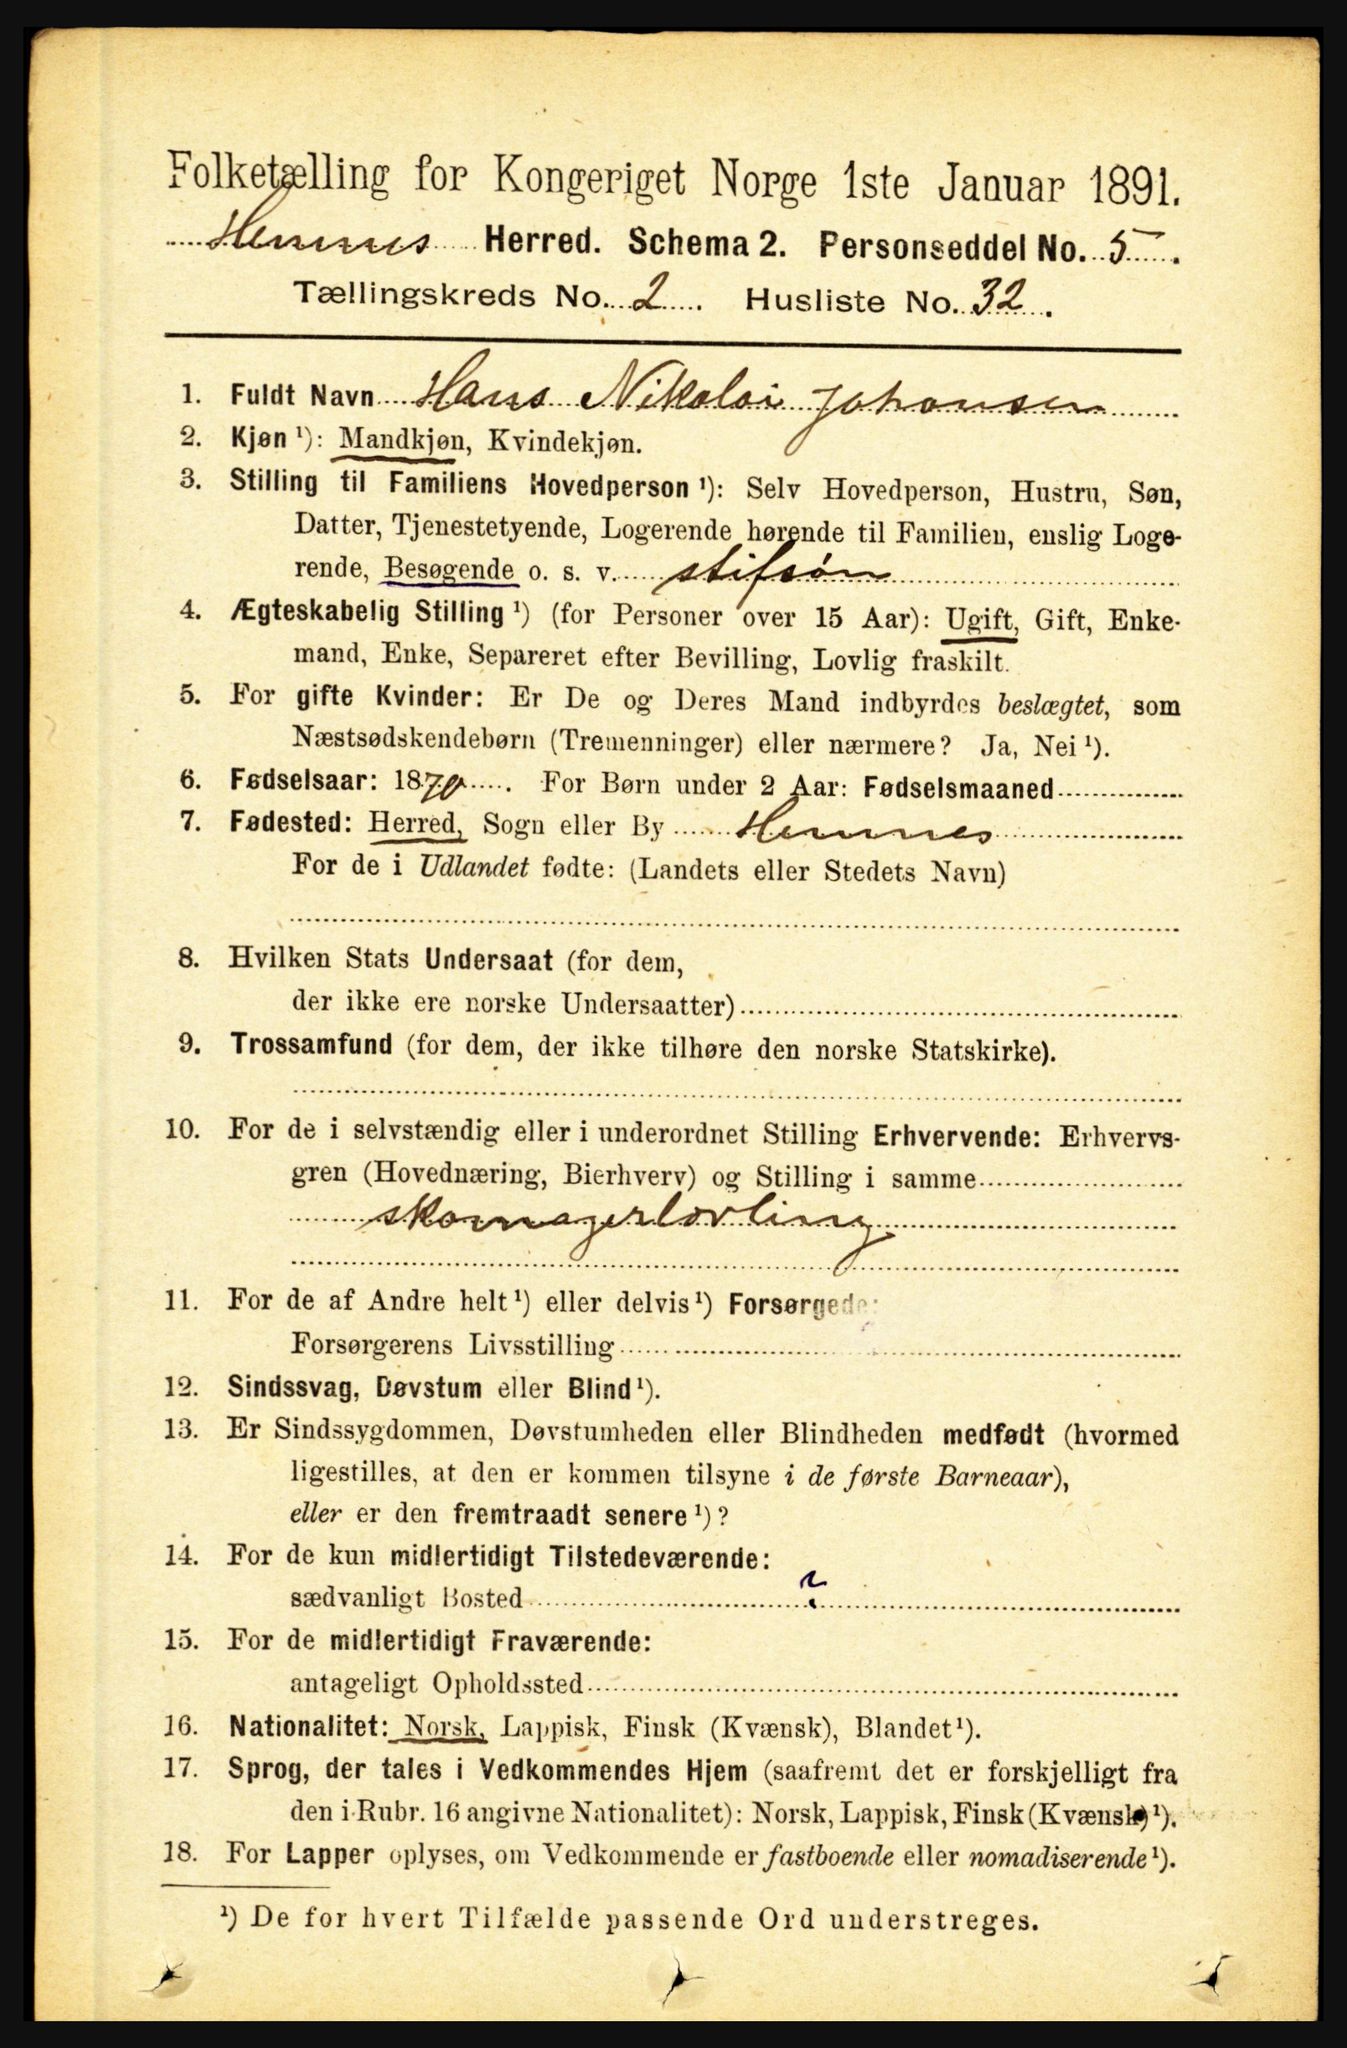 Folketælling for Kongeriget Norge 1ste Januar 1891.
Hemnes Herred. Schema 2. Personseddel No. 5.
Tællingskreds No. 2. Husliste No. 32.
1. Fuldt Navn Hans Nikolai Johansen
2. Kjøn ¹): Mandkjøn, Kvindekjøn.
3. Stilling til Familiens Hovedperson ¹): Selv Hovedperson, Hustru, Søn,
Datter, Tjenestetyende, Logerende hørende til Familien, enslig Loge-
rende, Besøgende o. s. v. stifsøn
4. Ægteskabelig Stilling ¹) (for Personer over 15 Aar): Ugift, Gift, Enke-
mand, Enke, Separeret efter Bevilling, Lovlig fraskilt.
5. For gifte Kvinder: Er De og Deres Mand indbyrdes beslægtet, som
Næstsødskendebørn (Tremenninger) eller nærmere? Ja, Nei ¹).
6. Fødselsaar: 1870. For Børn under 2 Aar: Fødselsmaaned
7. Fødested: Herred, Sogn eller By Hemnes
For de i Udlandet fødte: (Landets eller Stedets Navn)
8. Hvilken Stats Undersaat (for dem,
der ikke ere norske Undersaatter)
9. Trossamfund (for dem, der ikke tilhøre den norske Statskirke).
10. For de i selvstændig eller i underordnet Stilling Erhvervende: Erhvervs-
gren (Hovednæring, Bierhverv) og Stilling i samme
skomagerlovling
11. For de af Andre helt ¹) eller delvis ¹) Forsørgede:
Forsørgerens Livsstilling
12. Sindssvag, Døvstum eller Blind ¹).
13. Er Sindssygdommen, Døvstumheden eller Blindheden medfødt (hvormed
ligestilles, at den er kommen tilsyne i de første Barneaar),
eller er den fremtraadt senere ¹)?
14. For de kun midlertidigt Tilstedeværende:
sædvanligt Bosted ?
15. For de midlertidigt Fraværende:
antageligt Opholdssted
16. Nationalitet: Norsk, Lappisk, Finsk (Kvænsk), Blandet ¹).
17. Sprog, der tales i Vedkommendes Hjem (saafremt det er forskjelligt fra
den i Rubr. 16 angivne Nationalitet): Norsk, Lappisk, Finsk (Kvænsk) ¹).
18. For Lapper oplyses, om Vedkommende er fastboende eller nomadiserende ¹).
¹) De for hvert Tilfælde passende Ord understreges.